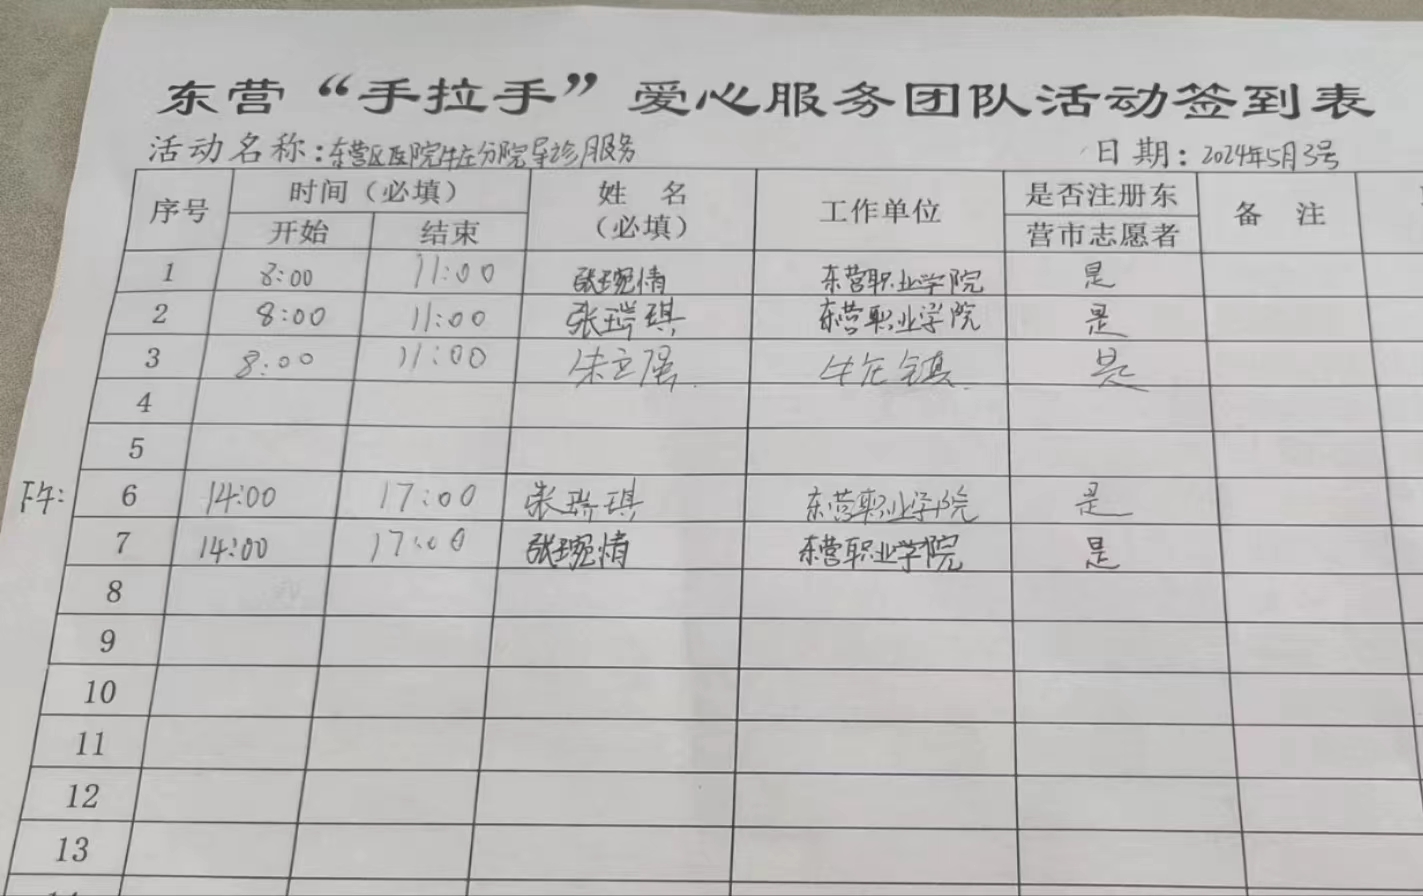 东营“手拉手”爱心服务团队活动签到表
活动名称：东营区医院牛庄分院导诊服务 日期：2024年5月3号
序号 时间（必填） 姓 名 工作单位 是否注册东 备 注
开始 结束 （必填） 营市志愿者
1 8:00 11:00 张琬情 东营职业学院 是
2 8:00 11:00 张瑞琪 东营职业学院 是
3 8:00 11:00 朱立强 牛庄镇 是
4
5
下午: 6 14:00 17:00 张瑞琪 东营职业学院 是
7 14:00 17:00 张琬情 东营职业学院 是
8
9
10
11
12
13